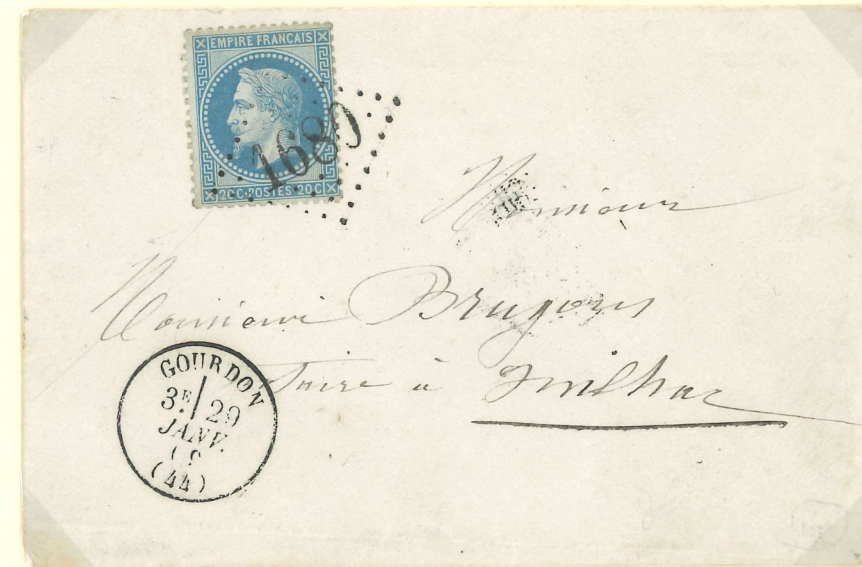 EMPIRE FRANÇAIS
20C·POSTES·20C
1680
Monsieur
Monsieur Brugous
à Milhac
GOURDON
3E 29
JANV.
(44)